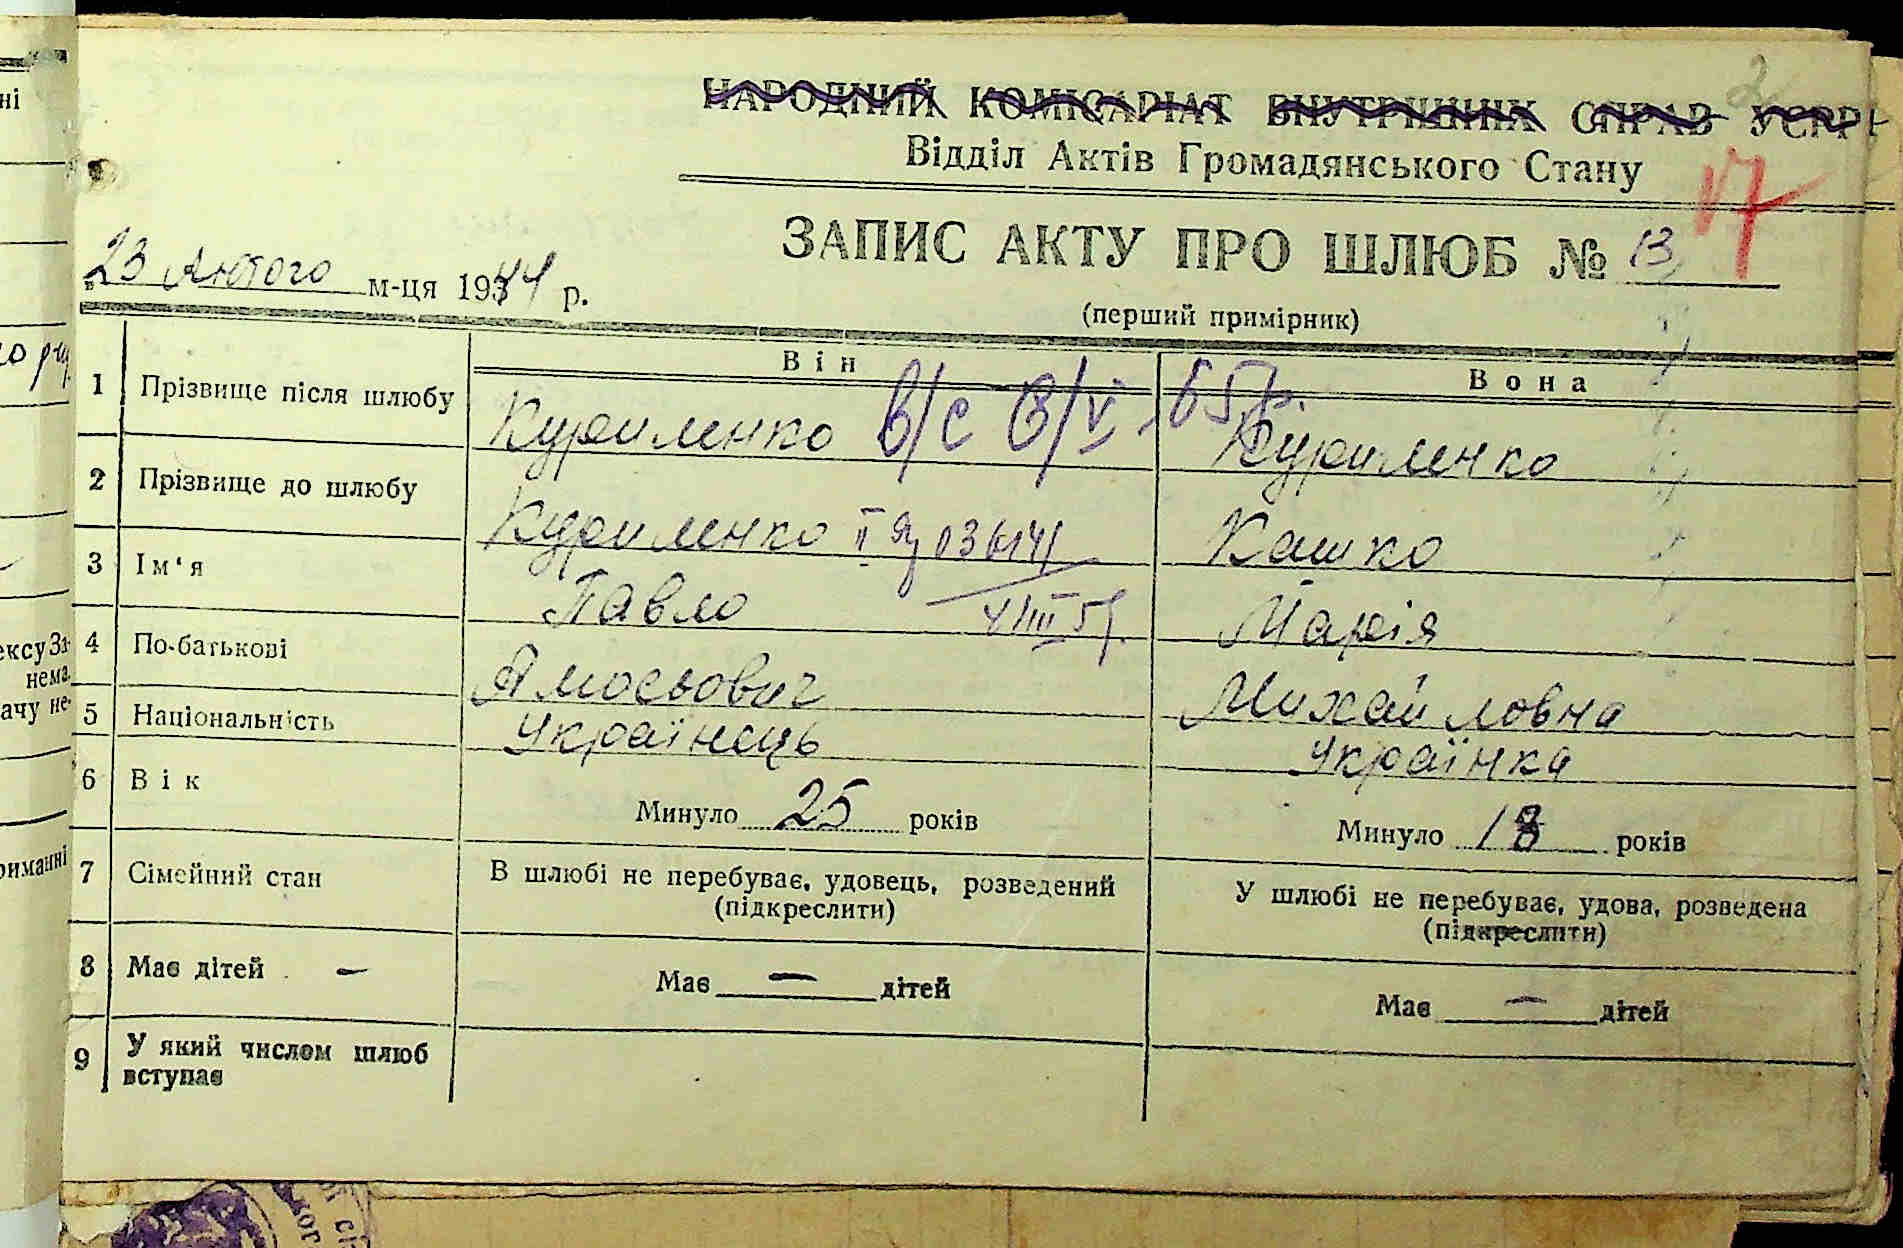 2
НАРОДНИЙ КОМІСАРІАТ ВНУТРІШНІХ СПРАВ УСРР
Відділ Актів Громадянського Стану
17
ЗАПИС АКТУ ПРО ШЛЮБ № 13
23 Лютого м-ця 1944 р.
(перший примірник)
Він Вона
1 Прізвище після шлюбу Курименко в/с Курименко
2 Прізвище до шлюбу Курименко Кашко
3 Ім'я Павло Марія
4 По-батькові Амосьович Михайловна
5 Національність Українець Українка
6 Вік Минуло 25 років Минуло 18 років
7 Сімейний стан В шлюбі не перебуває, удовець, розведений У шлюбі не перебуває, удова, розведена
(підкреслити) (підкреслити)
8 Має дітей — Має — дітей Має — дітей
9 У який числом шлюб
вступає